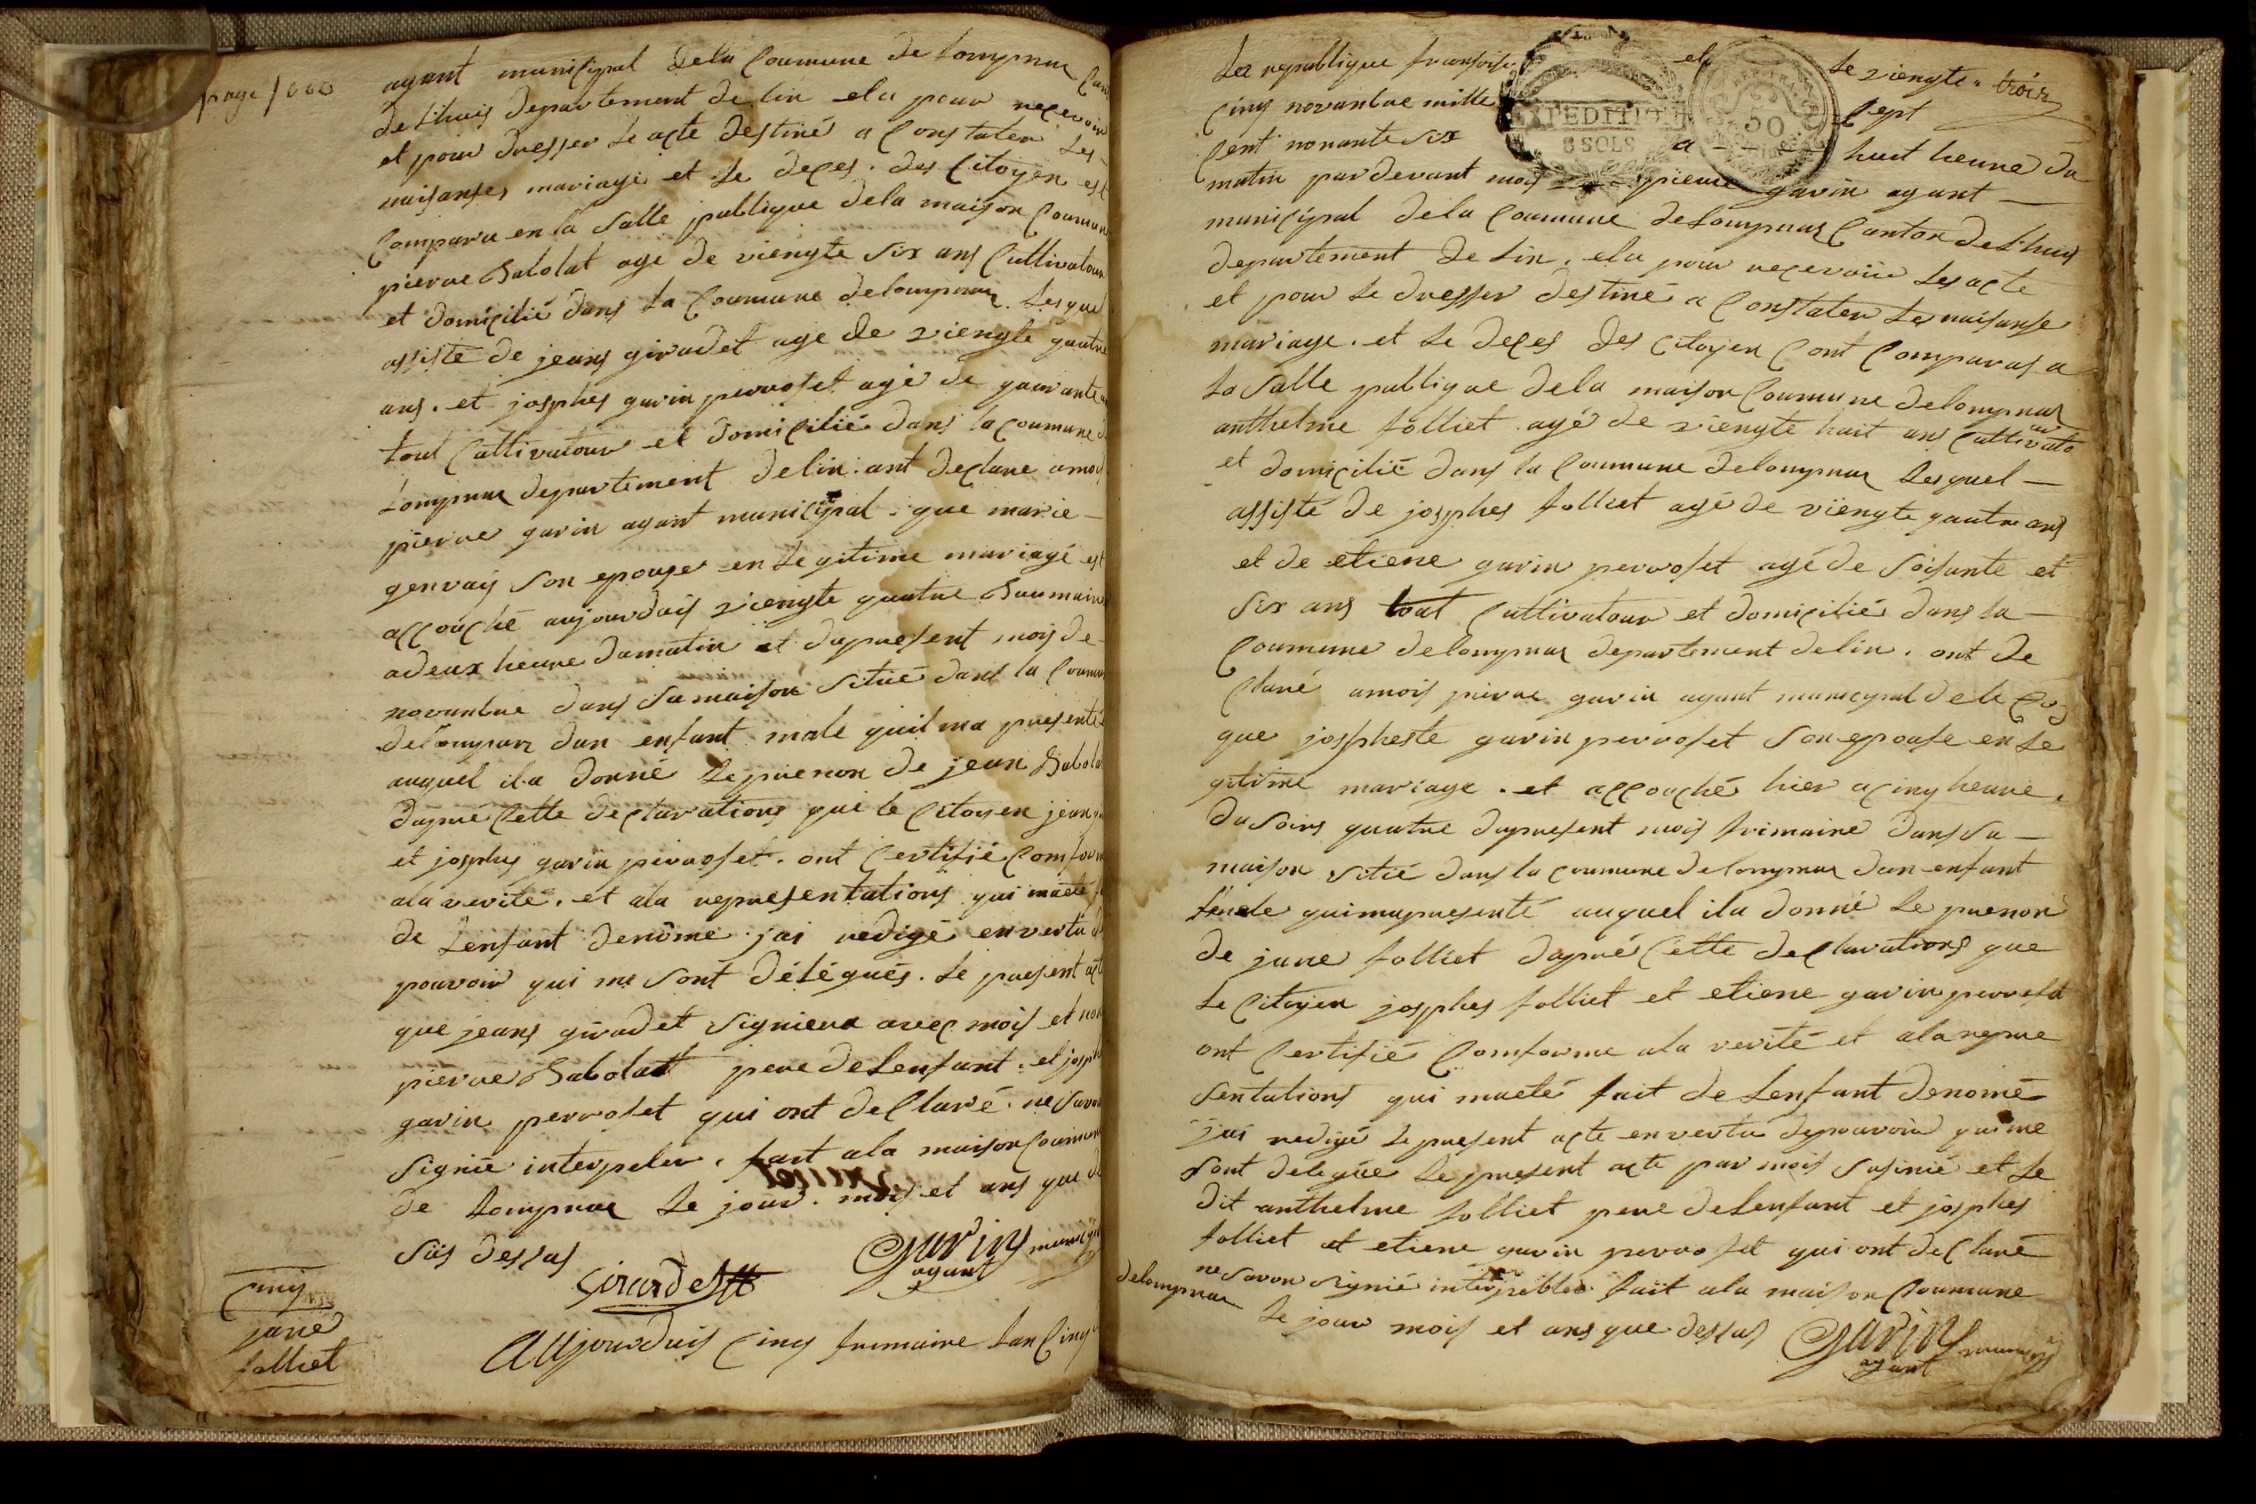 page
agant municipal dela Coumune de Lompnas Can
de Lhuis departement de lin elu pour recevoir
et pour dresser le acte destiné a Constater Les
naisanse, mariage et le deces. des Citoyen est
Comparu en la Salle publique dela maison Coumune
pierre Babolat age de viengte Six ans Cultivatour
et domicilié dans La Coumune delompnas Lesquel
assiste de jeans giradet age de viengte quatre
ans. et josphes gavin perroset agé de quarante
tout Cultivatour et domicilié dans la coumune
Lompnas departement delin. ant declare a mois
pierre gavin agant municipal. que marie
genvais Son epouse en legitime mariagé est
accouché aujourduis viengte quatre Baumaire
adeux heure damatin et dupresent mois de
novanbre dans Sa maison Situé dans la Coumune
delompnas dun enfant male quil ma presenté
auquel ila donné Le prenon de jean Babolat
dapré Cette declarations que le Citoyen jean
et josphes gavin perroset. ont Certifié Comforme
ala verité. et ala representations qui maeté
de Lenfant denomé jai redigé envertu
pouvoir qui me Sont délégués. Le present acte
que jeans giradet Signiera avec mois et non
pierre Babolat pere deLenfant. et josphes
gavin perroset qui ont declaré. ne Savon
Signié interpeler. fait ala maison Coumune
de Lompnas Le jour. mois et ans que de
Sus dessus
Girardet
Gavin
agant
Cinq
jane
folliet
Aujourduis Cinq frimaire Lan Cinq
La republique fransoise et le viengte trois
EXPEDITION
8 SOLS
50
Cinq novanbre mille Sept
Cent nonante Six a huit heure du
matin pardevant mois pierre gavin agant
municipal dela Coumune deLompnas Canton deLhuis
departement de Lin. elu pour recevoire Les acte
et pour Le dresser destiné a Constater Les naisanse
mariage. et Le deces des Citoyen Cont Comparus a
La Salle publique dela maison Coumune delompnas
anthelme folliet agé de viengte huit ans Cultivato
ur
et domicilié dans la Coumune delompnas Lesquel
assisté de josphes folliet agé de viengte quatre ans
et de etiene gavin perroset agé de Soisante et
Six ans tout Cultivatour et domicilié dans la
Coumune delompnas departement delin. ont de
Claré amois pierre gavin agant municypal de le
que jospheste gavin perroset Son epouse en Le
gitime mariage. et accouché hier acinq heure
du Soirs quatre dupresent mois frimaire dans Sa
maison Sitié dans la coumune delompnas dun enfant
femele quimapresenté auquel ila donné Le prenon
de jane folliet dapré Cette declarations que
Le Citoyen josphes folliet et etiene gavin perroset
ont Certifié Comforme ala verité et ala repre
Sentations qui maeté fait de Lenfant denomé
jai redigé Le present acte envertu depouvoir quime
Sont delegée Le present acte par mois Susinié et Le
dit anthelme folliet pere deLenfant et josphes
folliet et etiene gavin perroset qui ont declaré
ne Savon Signié interpeller fait ala maison Coumune
delompnas Le jour mois et ans que dessus
Gavin
agant